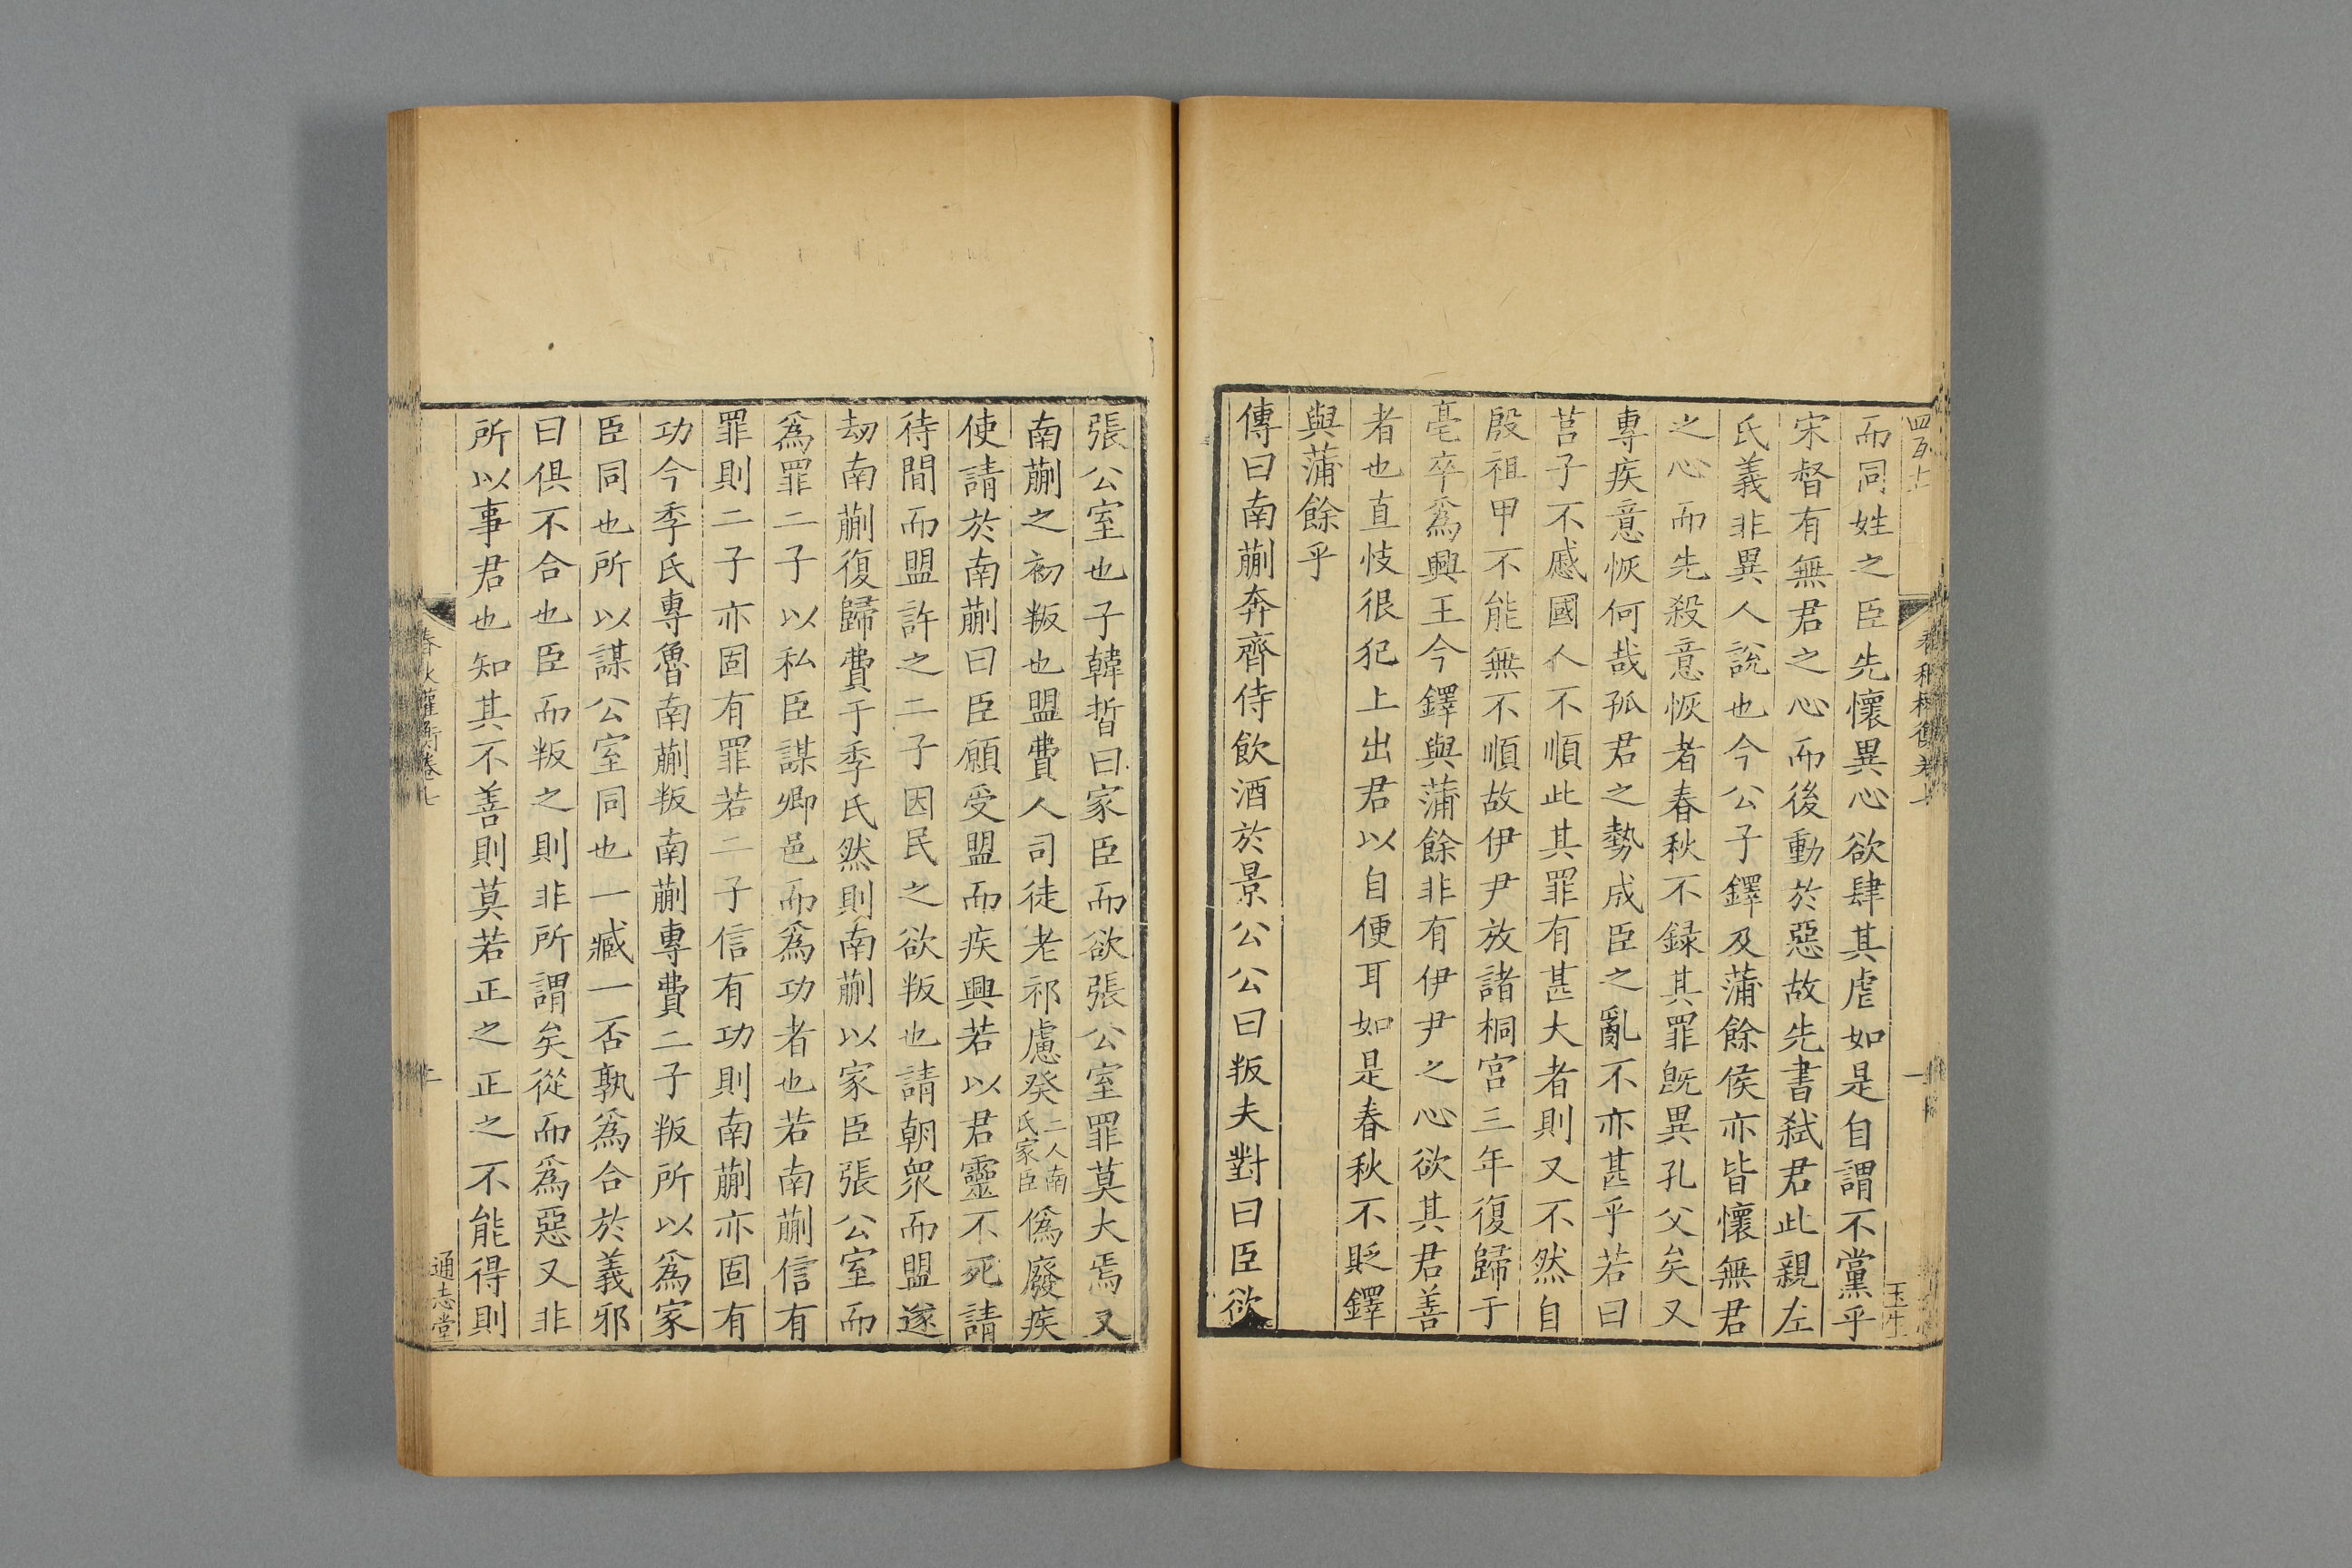 而同姓之臣先懷異心欲肆其虐如是自謂不黨乎
宋督有無君之心而後動於惡故先書弑君此親左
氏義非異人說也今公子鐸及蒲餘侯亦皆懷無君
之心而先殺意恢者春秋不録其罪旣異孔父矣又
專疾意恢何哉孤君之勢成臣之亂不亦甚乎若曰
莒子不慼國人不順此其罪有甚大者則又不然自
殷祖甲不能無不順故伊尹放諸桐宮三年復歸于
亳卒爲興王今鐸與蒲餘非有伊尹之心欲其君善
者也直忮很犯上出君以自便耳如是春秋不貶鐸
與蒲餘乎
傳曰南蒯奔齊侍飲酒於景公公曰叛夫對曰臣欲
玉生
張公室也子韓晳曰家臣而欲張公室罪莫大焉又
南蒯之初叛也盟費人司徒老祁慮癸二人南氏家臣僞廢疾
使請於南蒯曰臣願受盟而疾興若以君靈不死請
待間而盟許之二子因民之欲叛也請朝衆而盟遂
劫南蒯復歸費于季氏然則南蒯以家臣張公室而
爲罪二子以私臣謀卿邑而爲功者也若南蒯信有
罪則二子亦固有罪若二子信有功則南蒯亦固有
功今季氏專魯南蒯叛南蒯專費二子叛所以爲家
臣同也所以謀公室同也一臧一否孰爲合於義邪
曰俱不合也臣而叛之則非所謂矣從而爲惡又非
所以事君也知其不善則莫若正之正之不能得則
春秋權衡卷七
二
通志堂